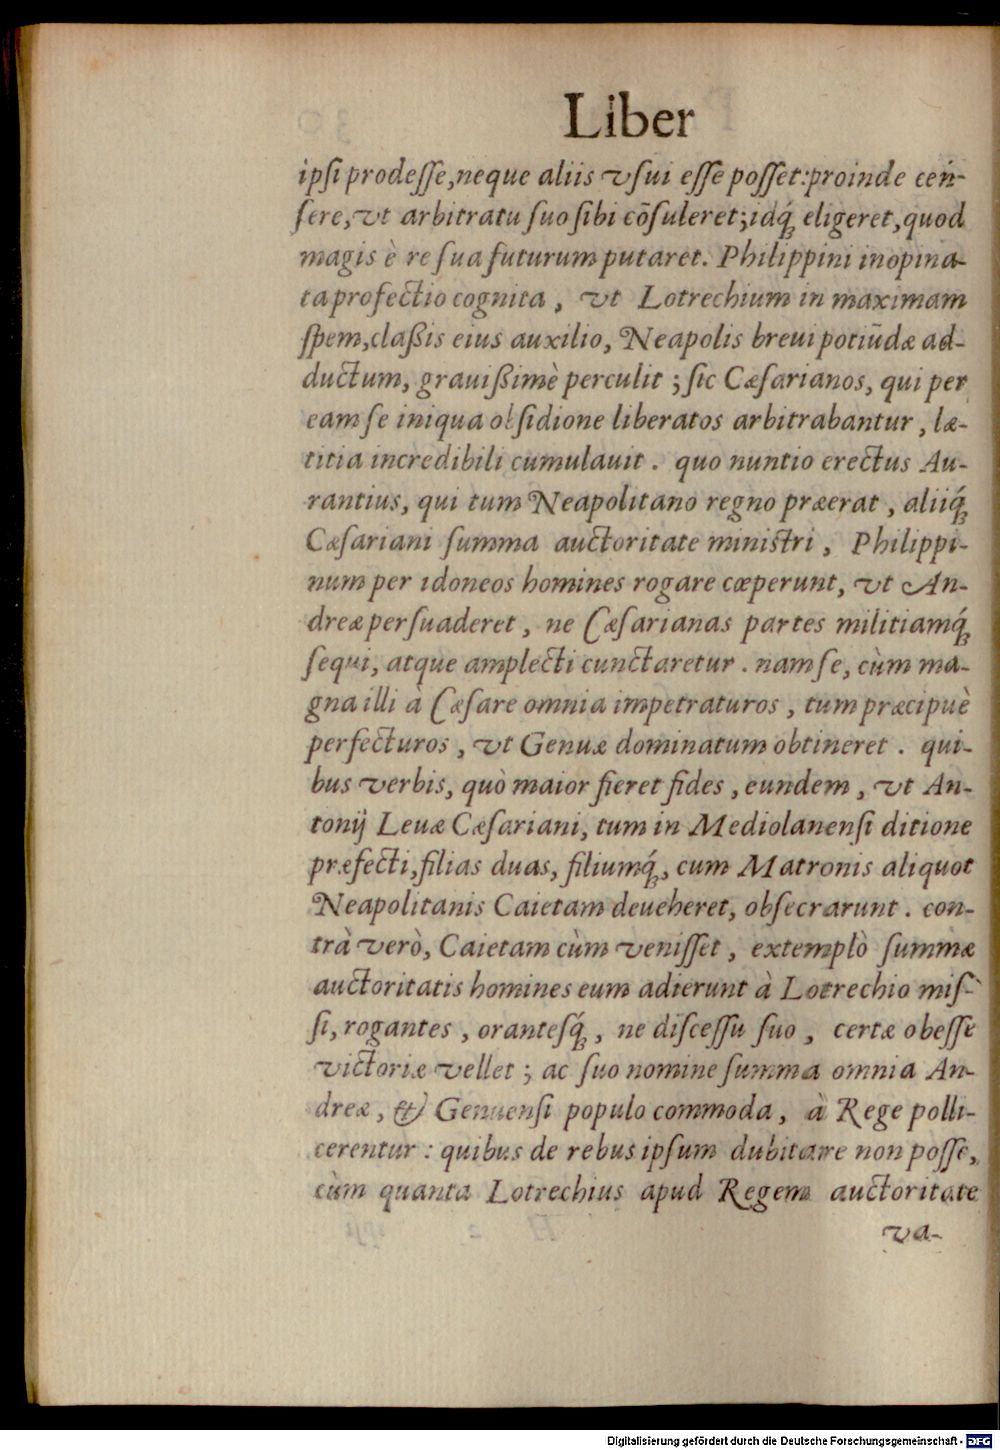 Liber
ipſi prodeſſe, neque aliis vſui eſſe poſſet: proinde cen-
ſere, vt arbitratu ſuo ſibi cõſuleret; idq́; eligeret, quod
magis è re ſua futurum putaret. Philippini inopina-
ta profectio cognita, vt Lotrechium in maximam
ſpem, claßis eius auxilio, Neapolis breui potiũdæ ad-
ductum, grauißimè perculit; ſic Cæſarianos, qui per
eam ſe iniqua obſidione liberatos arbitrabantur, læ-
titia incredibili cumulauit. quo nuntio erectus Au-
rantius, qui tum Neapolitano regno præerat, aliiq́;
Cæſariani ſumma auctoritate miniſtri, Philippi-
num per idoneos homines rogare cœperunt, vt An-
dreæ perſuaderet, ne Cæſarianas partes militiamq́;
ſequi, atque amplecti cunctaretur. nam ſe, cùm ma-
gna illi à Cæſare omnia impetraturos, tum præcipuè
perfecturos, vt Genuæ dominatum obtineret. qui-
bus verbis, quò maior fieret fides, eundem, vt An-
tonij Leuæ Cæſariani, tum in Mediolanenſi ditione
præfecti, filias duas, filiumq́;, cum Matronis aliquot
Neapolitanis Caietam deueheret, obſecrarunt. con-
trà verò, Caietam cùm veniſſet, extemplò ſummæ
auctoritatis homines eum adierunt à Lotrechio miſ-
ſi, rogantes, oranteſq́;, ne diſceſſu ſuo, certæ obeſſe
victoriæ vellet; ac ſuo nomine ſumma omnia An-
dreæ, & Genuenſi populo commoda, à Rege polli-
cerentur: quibus de rebus ipſum dubitare non poſſe,
cùm quanta Lotrechius apud Regem auctoritate
va-
Digitalisierung gefördert durch die Deutsche Forschungsgemeinschaft - DFG